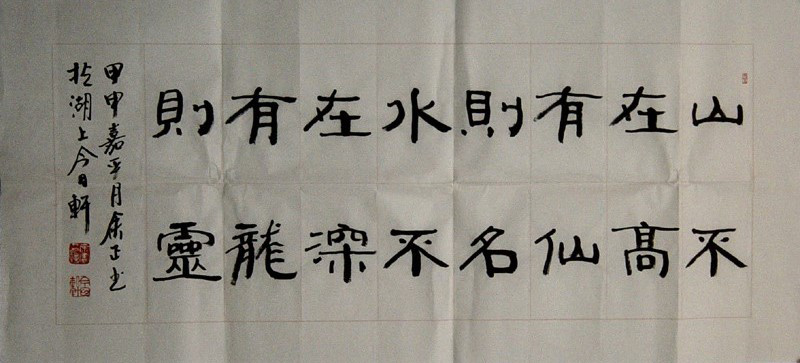 山不
在高
有仙
則名
水不
在深
有龍
則靈
甲申嘉平月余正书
於湖上今日軒